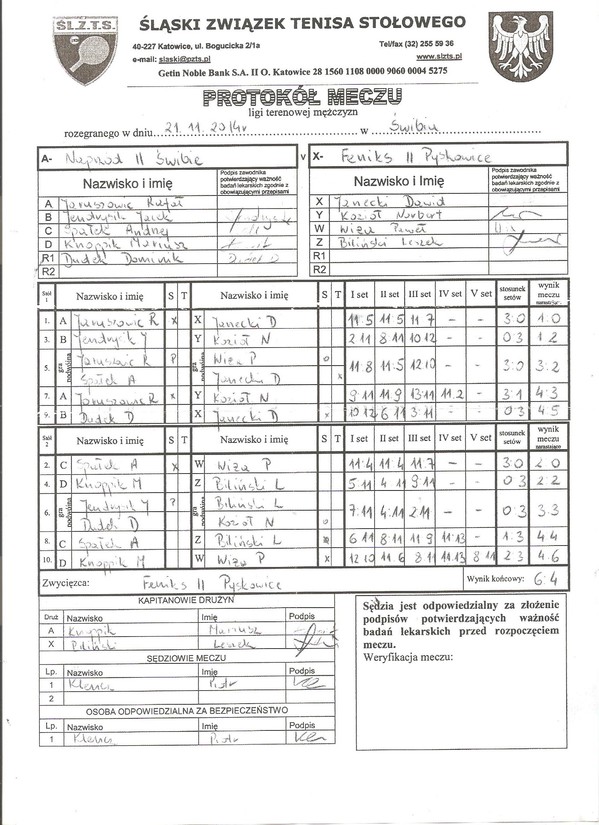 ŚL.Z.T.S.
ŚLĄSKI ZWIĄZEK TENISA STOŁOWEGO
40-227 Katowice, ul. Bogucicka 2/1a Tel/fax (32) 255 59 36
e-mail: slaski@pzts.pl www.slzts.pl
Getin Noble Bank S.A. II O. Katowice 28 1560 1108 0000 9060 0004 5275
PROTOKÓŁ MECZU
ligi terenowej mężczyzn
rozegranego w dniu 21.11.2014r w Świbiu
A- Naprzód II Świbie v X- Feniks II Pyskowice
Nazwisko i Imię Podpis zawodnika potwierdzający ważność badań lekarskich zgodnie z obowiązującymi przepisami Nazwisko i Imię Podpis zawodnika potwierdzający ważność badań lekarskich zgodnie z obowiązującymi przepisami
A Januszowic Rafał X Janecki Dawid
B Jendrysik Jacek Y Kozioł Norbert
C Spałek Andrzej W Wiza Paweł
D Knoppik Mariusz Z Biliński Leszek
R1 Dudek Dominik R1
R2 R2
Stół 1 Nazwisko i imię S T Nazwisko i imię S T I set II set III set IV set V set stosunek setów wynik meczu narastająco
1. A Januszowic R x X Janecki D 11:5 11:5 11:7 - - 3:0 1:0
3. B Jendrysik J Y Kozioł N 2:11 8:11 10:12 - - 0:3 1:2
5. gra podwójna Januszowic R P Wiza P o 11:8 11:5 12:10 - - 3:0 3:2
Spałek A Janecki D x
7. A Januszowic R x Y Kozioł N 9:11 11:9 13:11 11:2 - 3:1 4:3
9. B Dudek D X Janecki D x 10:12 6:11 3:11 0:3 4:5
Stół 2 Nazwisko i imię S T Nazwisko i imię S T I set II set III set IV set V set stosunek setów wynik meczu narastająco
2. C Spałek A x W Wiza P 11:4 11:4 11:7 - - 3:0 2:0
4. D Knoppik M Z Biliński L 5:11 4:11 9:11 - - 0:3 2:2
6. gra podwójna Jendrysik J ? Biliński L 7:11 4:11 2:11 - - 0:3 3:3
Dudek D Kozioł N o
8. C Spałek A Z Biliński L 6:11 8:11 11:9 11:13 - 1:3 4:4
10. D Knoppik M W Wiza P x 12:10 11:6 8:11 11:13 8:11 2:3 4:6
Zwycięzca: Feniks II Pyskowice Wynik końcowy: 6:4
KAPITANOWIE DRUŻYN
Druż Nazwisko Imię Podpis
A Knoppik Mariusz
X Biliński Leszek
SĘDZIOWIE MECZU
Lp. Nazwisko Imię Podpis
1 Klenca Piotr
2
OSOBA ODPOWIEDZIALNA ZA BEZPIECZEŃSTWO
Lp. Nazwisko Imię Podpis
1 Klenca Piotr
Sędzia jest odpowiedzialny za złożenie
podpisów potwierdzających ważność
badań lekarskich przed rozpoczęciem
meczu.
Weryfikacja meczu: